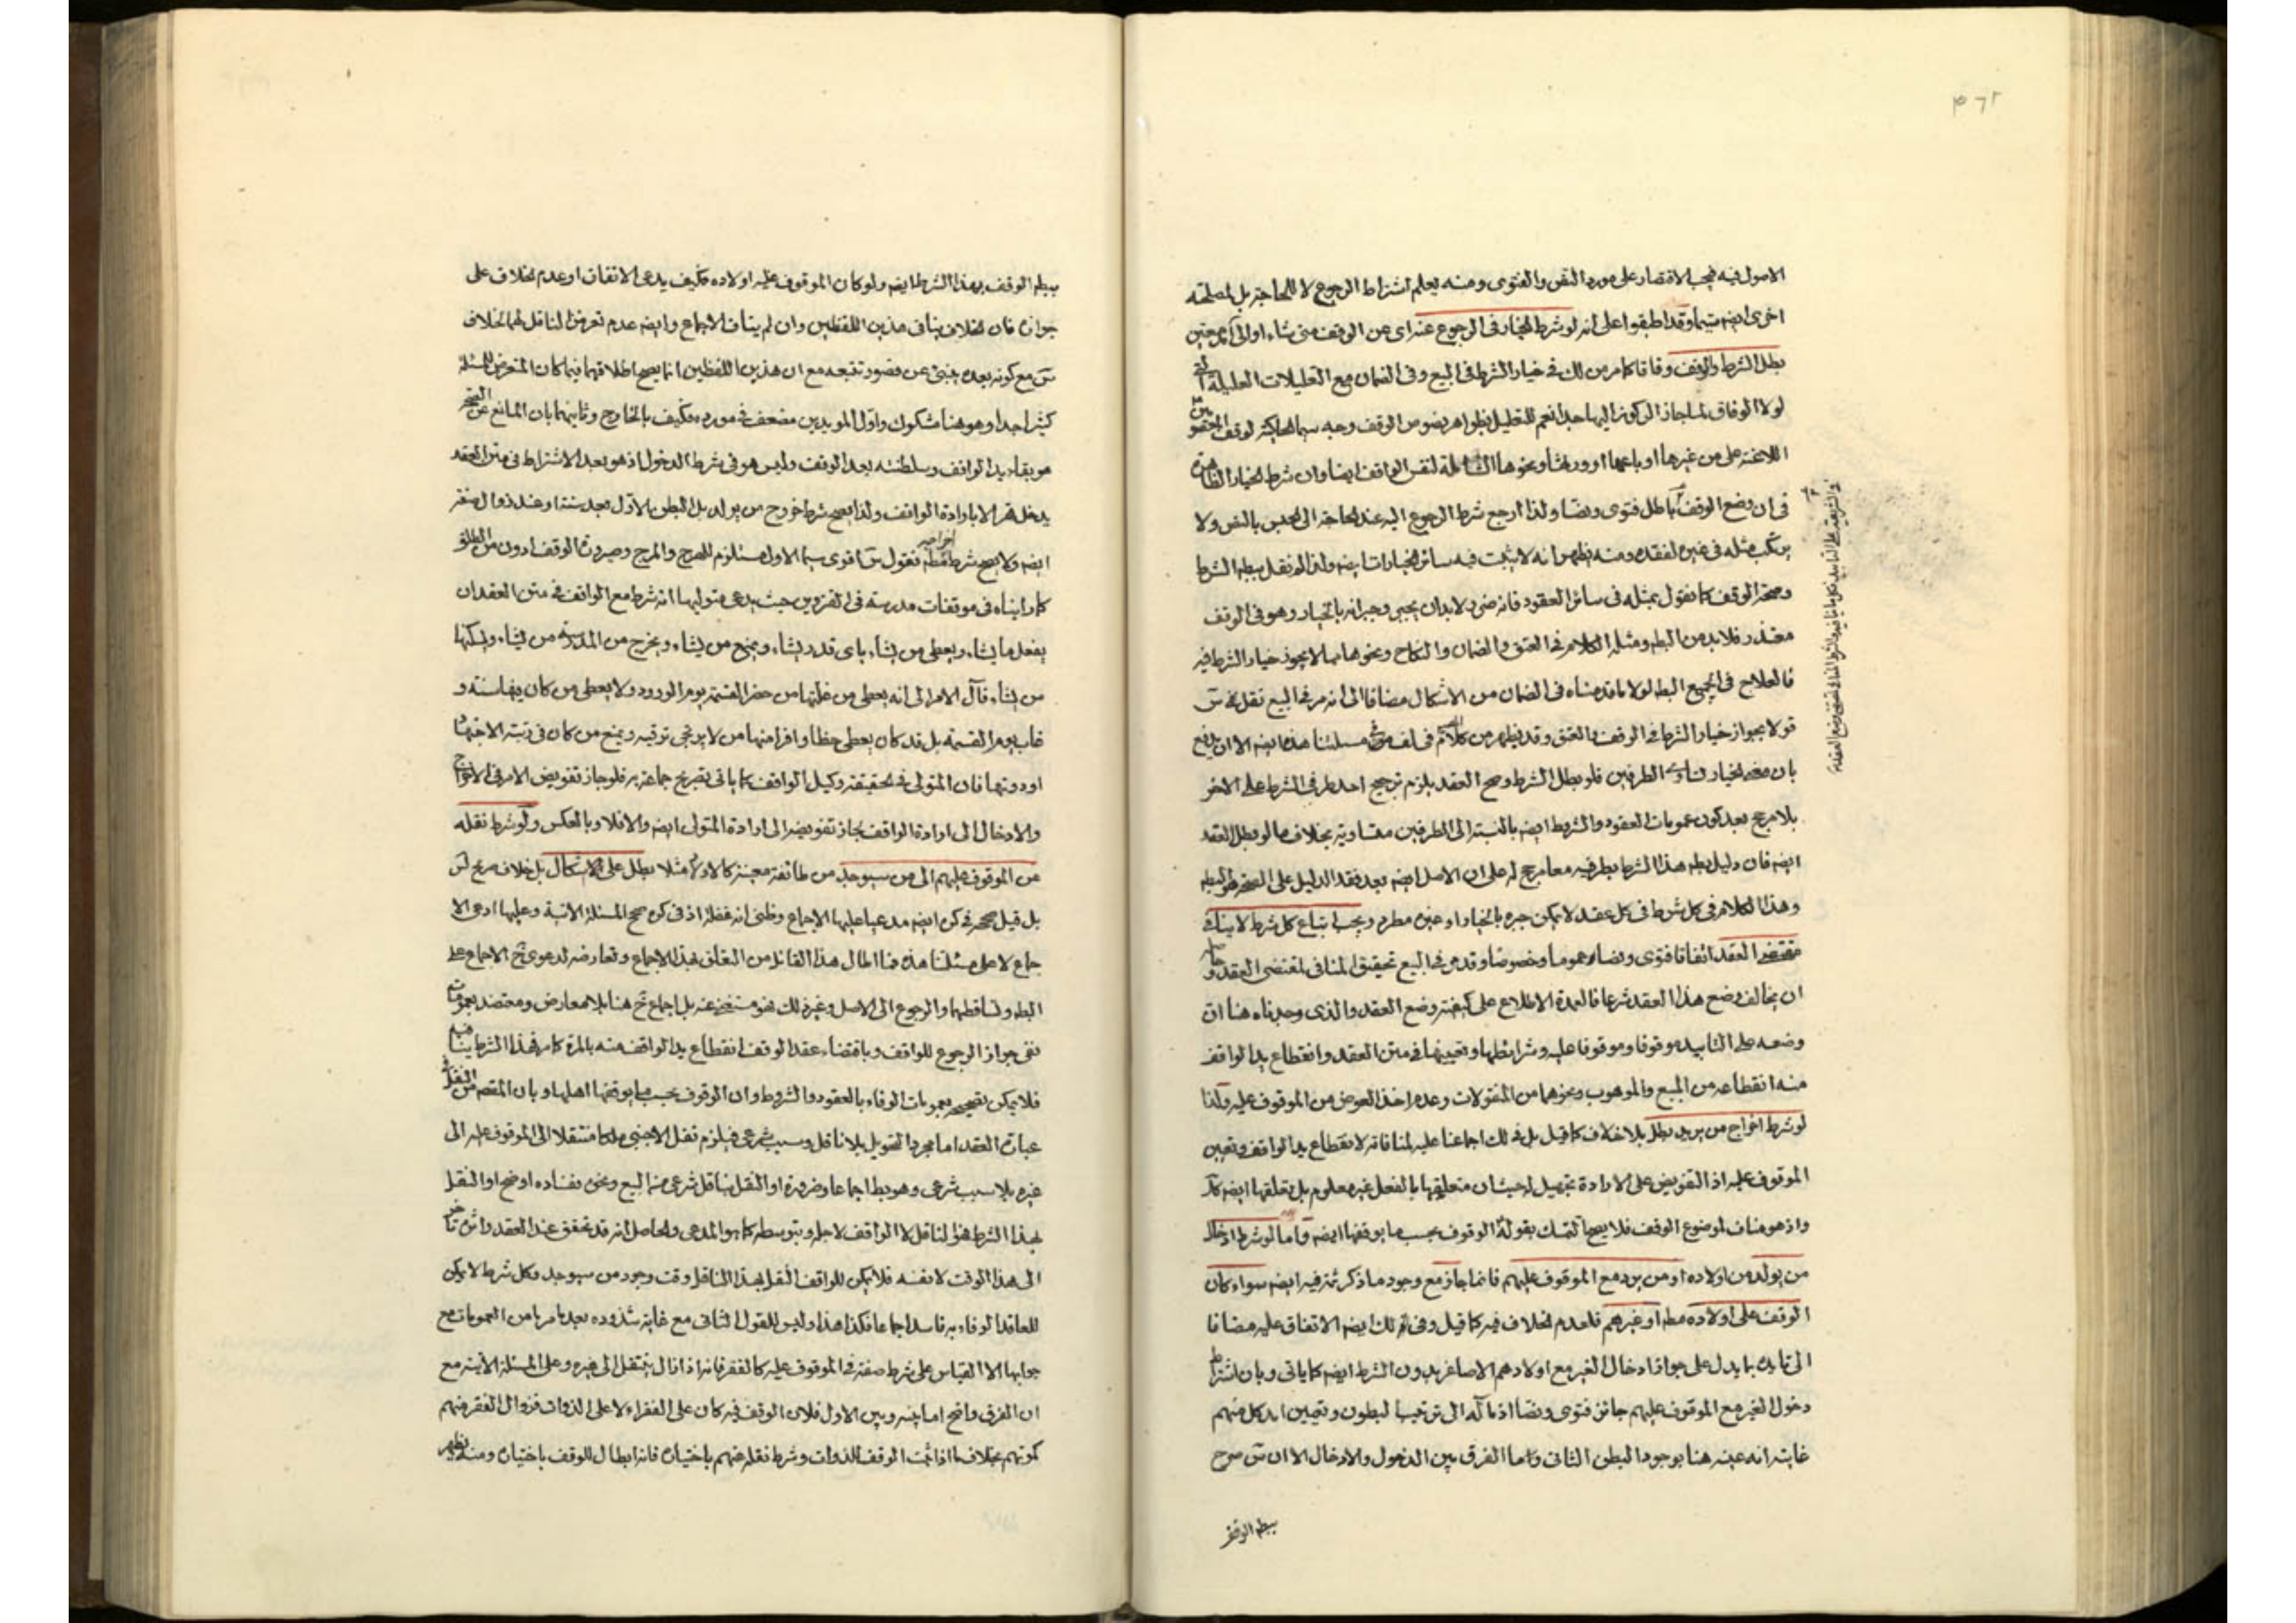 ٣٦٢
الاصول فيه فيجب الاقتصار على مورد النص والفتوى ومنه يعلم اشتراط الرجوع لا للحاجة بل لمصلحة
اخرى ايضه وقد اطبقوا على انه لو شرط الخيار فى الرجوع عنه اى عن الوقف متى شاء او الى
بطل الشرط والوقف وفاقا كما مر من لك فى خيار الشرط فى البيع وفى الضمان مع التعليلات العليلة التى
لولا الوفاق لما جاز الركون اليها جدا نعم للتعليل بظواهر نصوص الوقف وجه سيما الحاكية لوقف
على من غيرها او باعها او ورثها ونحوها الشاملة لنفس الواقف ايضا وان شرط الخيار
فى ان وضع الوقف باطل فتوى ونصا ولذا ارجع شرط الرجوع اليه عند الحاجة الى الحبس بالنص ولا
يرتكب مثله فى غيره لفقده ومنه يظهر انه لا يثبت فيه سائر الخيارات ايضه ولذا لم نقل ببطه الشرط
وصحة الوقف كما نقول بمثله فى سائر العقود فانه ضرر لابد ان يجبر وجبرانه بالخيار وهو فى الوقف
متعذر فلابد من البطه ومثله الكلام فى العتق والضمان والنكاح ونحوها مما لا يجوز خيار الشرط فيه
فالعلاج فى الجميع البطه لولا ما قدمناه فى الضمان من الاشكال مضافا الى انه مر فى البيع نقل
قولا بجواز خيار الشرط فى الوقف والعتق وقد يظهر من كلامهم فى مسئلتنا هذه ايضه الا ان يدفع
بان معه الخيار الطرفين فلو بطل الشرط وصح العقد يلزم ترجيح احد طرفى الشرط على الاخر
بلا مرجح بعد كون عمومات العقود والشروط ايضه بالنسبة الى الطرفين متساوية بخلاف ما لو بطل العقد
ايضه فان دليل بطه هذا الشرط بطرفيه معا مرجح له على ان الاصل ايضه بعد فقد الدليل على الصحة هو البطه
وهذا الكلام فى كل شرط فى كل عقد لا يمكن جبره بالخيار او غيره مطرد ويجب اتباع كل شرط لا ينافى
مقتضى العقد اتفاقا فتوى ونصا عموما وخصوصا وقد مر فى البيع تحقيق المنافى لمقتضى العقد و
ان يخالف وضع هذا العقد شرعا فالعمدة الاطلاع على كيفية وضع العقد والذى وجدناه هنا ان
وضعه على التابيد موقوفا وموقوفا عليه وشرائطها وتعيينها فى متن العقد وانقطاع يد الواقف
منه انقطاعه من المبيع والموهوب ونحوهما من المنقولات وعدم اخذ العوض من الموقوف عليه ولذا
لو شرط اخراج من يريد بطل بلا خلاف كما قيل بل فى لك اجماعنا عليه لمنافاته لانقطاع يد الواقف وتعيين
الموقوف عليه اذ التفويض على الارادة تجهيل له حيث ان متعلقها بالفعل غير معلوم بل تعلقها ايضه
واذ هو مناف لموضوع الوقف فلا يصح التمسك بقوله الوقوف بحسب ما يوقفها ايضه واما لو شرط ادخال
من يولد من اولاده او من يرد مع الموقوف عليهم فانما جاز مع وجود ما ذكر ثمه فيه ايضه سواء كان
الوقف على اولاده مطه او غيرهم فلعدم الخلاف فيه كما قيل وفى لك ايضه الاتفاق عليه مضافا
الى تاييده بما يدل على جواز ادخال الغير مع اولادهم الاصاغر بدون الشرط ايضه كما ياتى وبان اشتراط
دخول الغير مع الموقوف عليهم جائز فتوى ونصا اذ مآله الى ترتيب البطون وتعيين امد كل منهم
غايته انه عينه هنا بوجود البطن الثانى واما الفرق بين الدخول والادخال الا ان س صرح
ببطه الوقف
ببطه الوقف بهذا الشرط ايضه ولو كان الموقوف عليه اولاده فكيف يدعى الاتفاق او عدم الخلاف على
جوازه فان الخلاف ينافى هذين اللفظين وان لم يناف الاجماع وايضه عدم تعرض الناقل لهما لخلاف
س مع كونه بعده ينبئ عن قصور تتبعه مع ان هذين اللفظين انما يصح اطلاقهما فيما كان المتعرض للمسئلة
كثيرا جدا وهو هنا مشكوك واول المويدين مضعف فى مورده فكيف بالخارج وثانيهما بان المانع عن
هو بقاء يد الواقف وسلطنته بعد الوقف وليس هو فى شرط الدخول اذ هو بعد الاشتراط فى متن العقد
يدخل قهرا لا بارادة الواقف ولذا يصح شرط خروج من يولد بل البطن الاول بعد سنة او عند زوال صفته
ايضه ولا يصح شرط اخراجه مطه فقول س اقوى سيما الاول مستلزم للهرج والمرج وصيرورة الوقف ادون من الطلق
كما رايناه فى موقوفات مدرسة فى القزوين حيث يدعى متوليها انه شرط مع الواقف فى متن العقد ان
يفعل ما يشاء ويعطى من يشاء باى قدر يشاء ويمنع من يشاء ويخرج من المدرسة من يشاء ويسكنها
من يشاء فآل الامر الى انه يعطى من غلتها من حضر القسمة يوم الورود ولا يعطى من كان فيها سنة و
غاب يوم القسمة بل قد كان يعطى حظا وافرا منها من لا يرتجى ترقيه ويمنع من كان فى رتبة الاجتهاد
او دونها فان المتولى فى الحقيقة وكيل الواقف كما ياتى تصريح جماعة به فلو جاز تفويض الامر فى الاخراج
والادخال الى ارادة الواقف لجاز تفويضه الى ارادة المتولى ايضه والا فلا وبالعكس ولو شرط نقله
عن الموقوف عليهم الى من سيوجد من طائفة معينة كالاولاد مثلا بطل على الاشكال بل خلاف صريح لس
بل قيل صحه فى كره ايضه مدعيا عليها الاجماع وظنى انه غفلة اذ فى كره صحح المسئلة الاتية وعليها ادعى الا
جماع لا على مسئلتنا هذه فما اطال هذا القائل من التعلق بهذا الاجماع وتعارضه لدعوى الاجماع على
البطه وتساقطهما والرجوع الى الاصل وغير ذلك فهو مستغنى عنه بل اجماع هنا بلا معارض ومعتضد بعمومات
نفى جواز الرجوع للواقف وباقتضاء عقد الوقف انقطاع يد الواقف منه بالمرة كما مر فهذا الشرط ينافيه
فلا يمكن تصحيحه بعمومات الوفاء بالعقود والشروط وان الوقوف بحسب ما يوقفها اهلها وبان المقصه من النقل فى
عبارة العقد اما مجرد التحويل بلا ناقل وسبب شرعى فيلزم نقل الاجنبى ملكا منتقلا الى الموقوف عليه الى
غيره بلا سبب شرعى وهو بط اجماعا وضرورة او النقل بناقل شرعى من البيع ونحوه ففساده اوضح او النقل
بهذا الشرط فهو الناقل لا الواقف لاجله وبتوسطه كما هو المدعى والحاصل انه قد تحقق عند العقد واثره تاخر
الى هذا الوقت لا نفسه فلا يمكن للواقف النقل بهذا الناقل وقت وجود من سيوجد وكل شرط لا يمكن
للعاقد الوفاء به فاسد اجماعا فكذا هذا وليس للقول الثانى مع غاية شذوذه بعد ما مر ما من العمومات مع
جوابها الا القياس على شرط صفة فى الموقوف عليه كالفقر فانه اذا زال ينتقل الى غيره وعلى المسئلة الاتية مع
ان الفرق واضح اما بينه وبين الاول فلان الوقف فيه كان على الفقراء لا على الذوات فزوال الفقر منهم
كموتهم بخلاف ما اذا ثبت الوقف للذوات وشرط نقله عنهم باختياره فانه ابطال للوقف باختياره ومنه يظهر